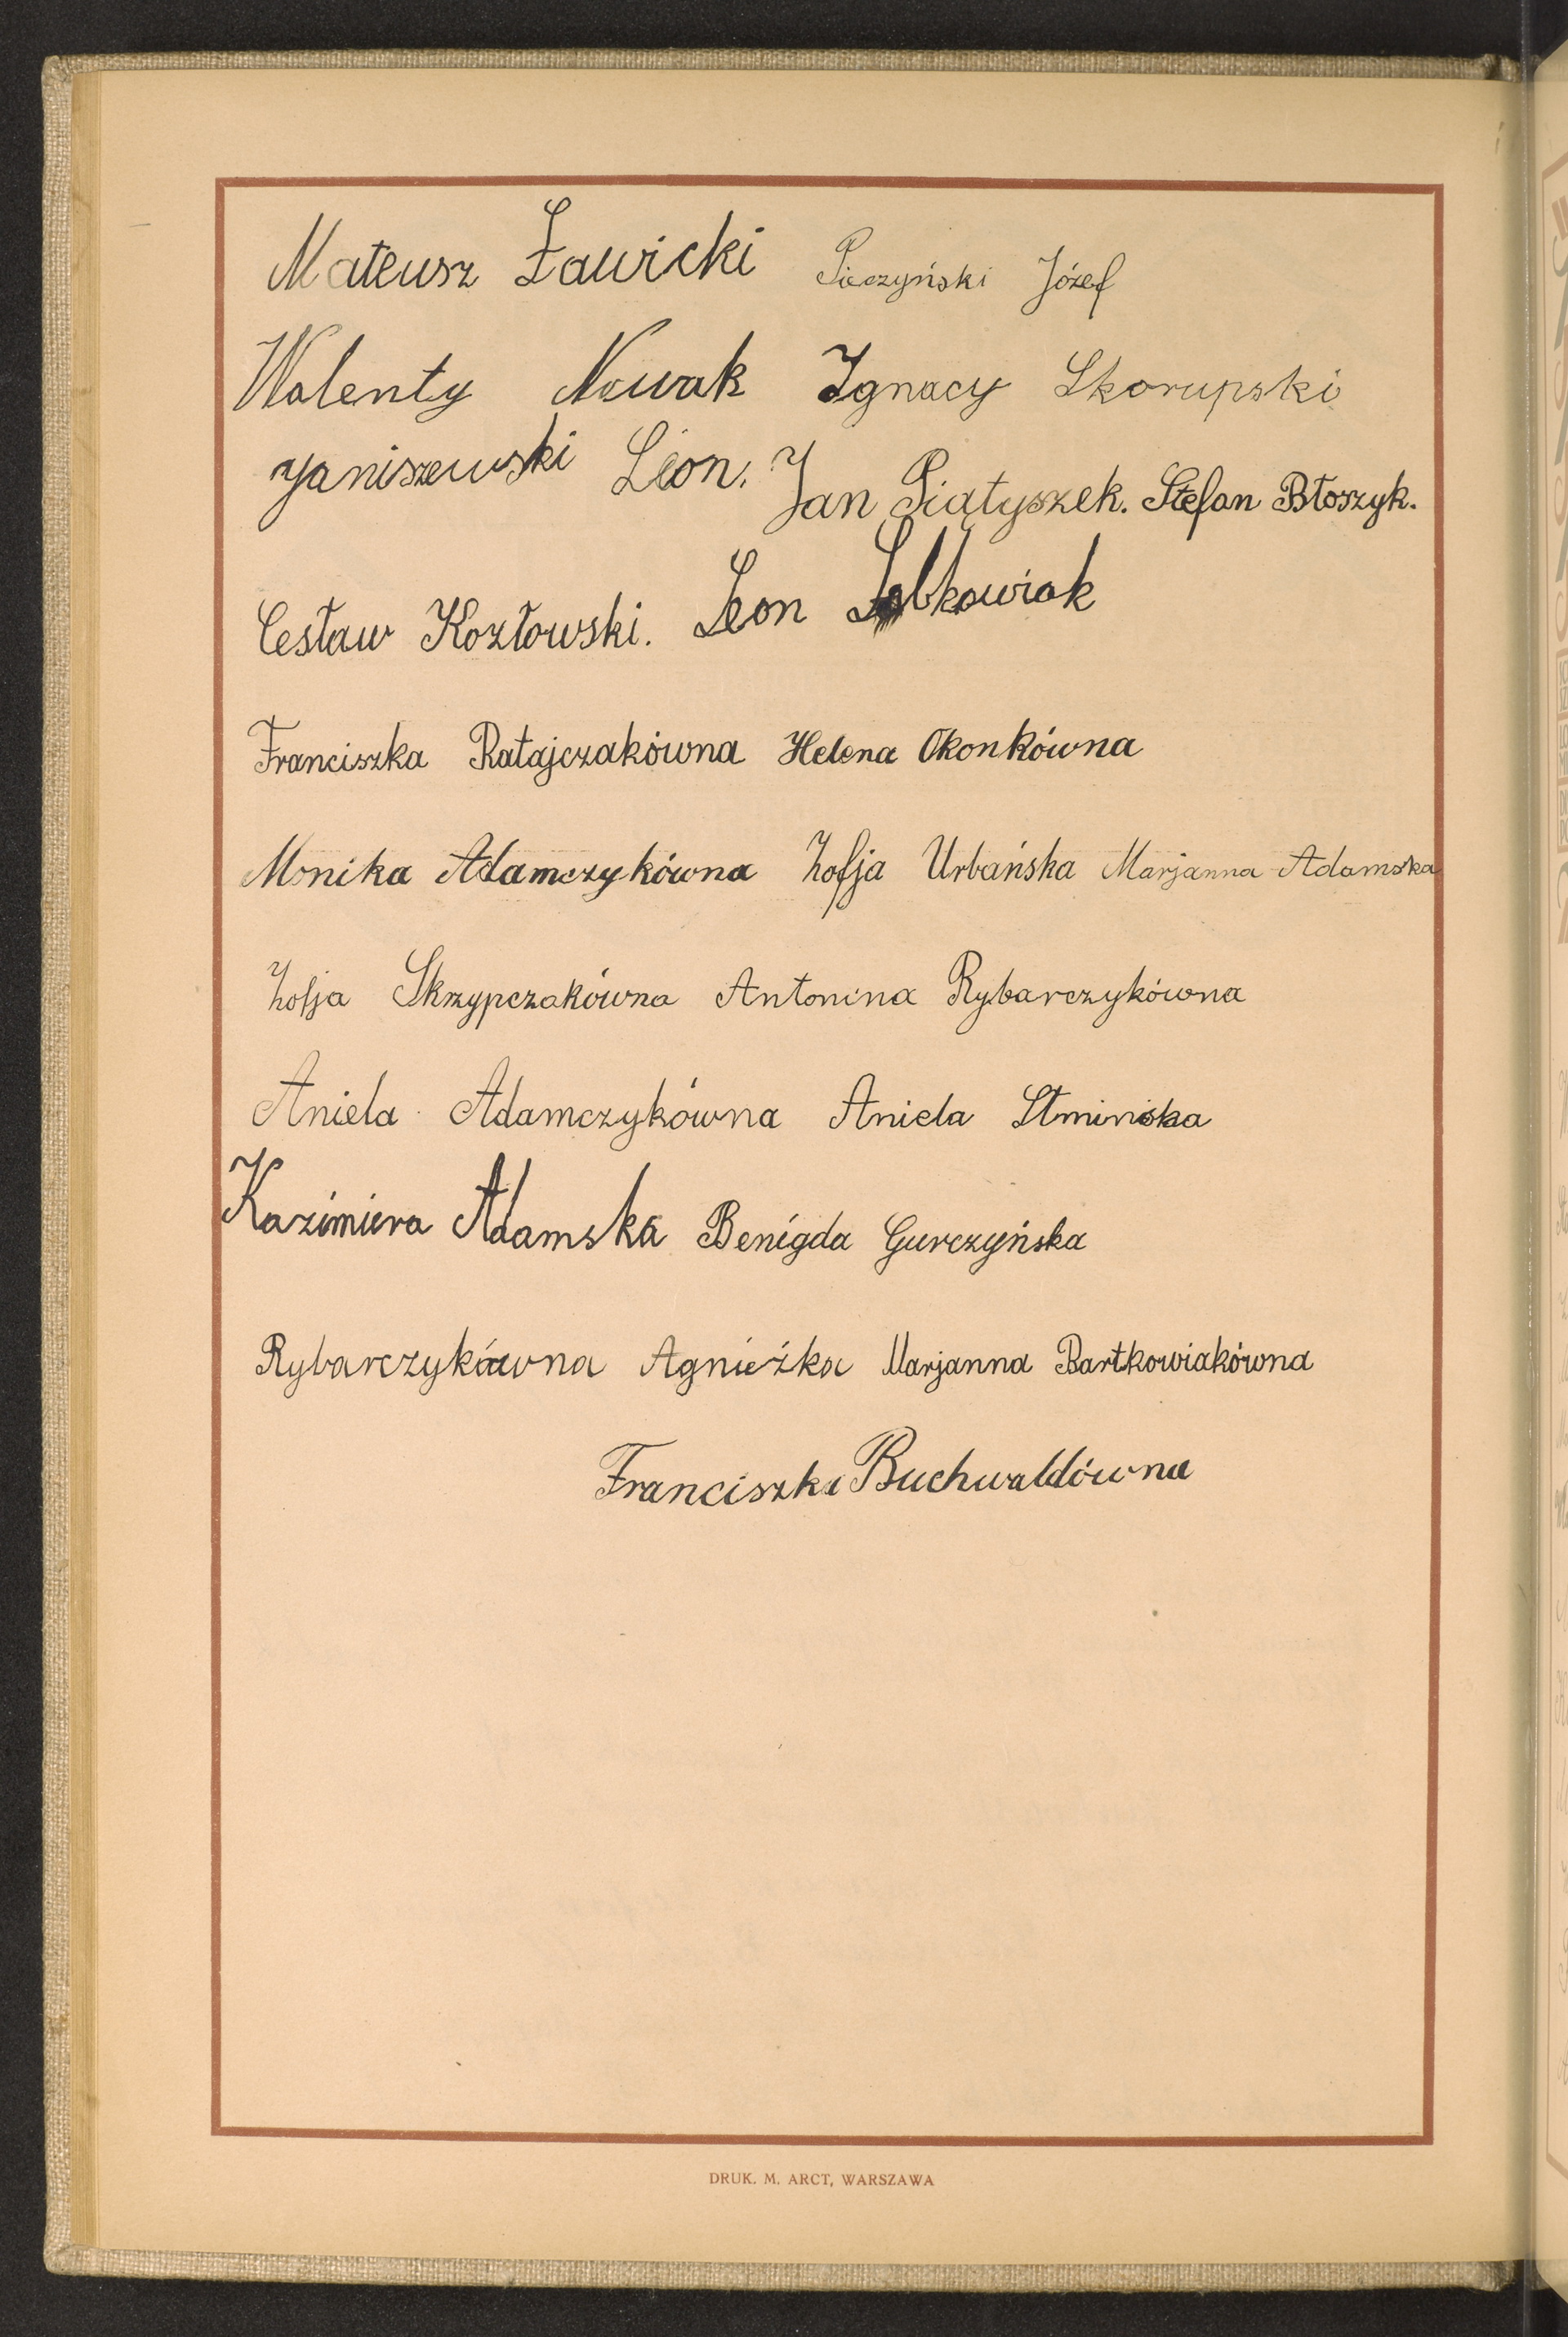 Mateusz Ławicki Pieczyński Józef
Walenty Nowak Ignacy Skorupski
Janiszewski Leon. Jan Piątyszek. Stefan Błoszyk.
Cesław Kozłowski. Leon Sobkowiak
Franciszka Ratajczakówna Helena Okonkówna
Monika Adamczykówna Zofja Urbańska Marjanna Adamska
Zofja Skrzypczakówna Antonina Rybarczykówna
Aniela Adamczykówna Aniela
Kazimiera Adamska Benigda Gurczyńska
Rybarczykówna Agnieżka Marjanna Bartkowiakówna
Franciszka Buchwaldówna
DRUK. M. ARCT, WARSZAWA